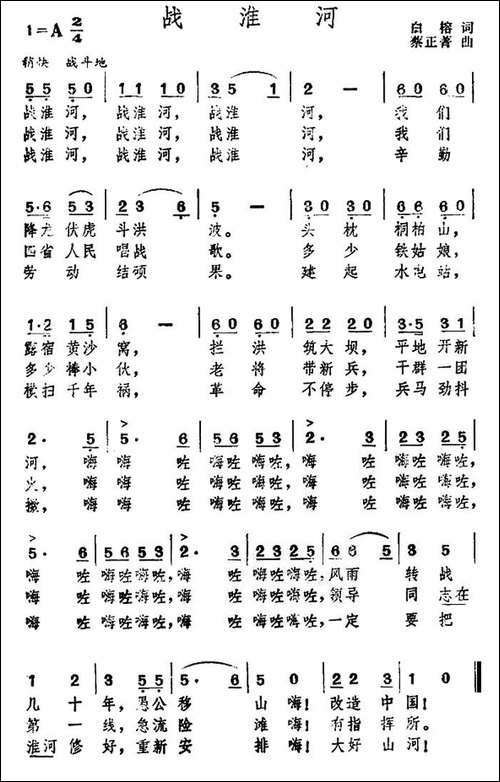 战淮河
1=A 2/4
白榕 词
蔡正菁 曲
稍快 战斗地
5 5 5 0 | 5 5 5 0 | 3 5 1 | 2 — | 6 0 6 0 |
战淮 河, 战淮 河, 战淮 河, 我 们
战淮 河, 战淮 河, 战淮 河, 我 们
战淮 河, 战淮 河, 战淮 河, 辛 勤
5·6 5 3 | 2 3 6 | 5 — | 3 0 3 0 | 6 6 6 0 |
降龙 伏虎 斗洪 波。 头 枕 桐柏 山,
四省 人民 唱战 歌。 多 少 铁姑 娘,
劳动 结硕 果。 建 起 水电 站,
1·2 1 5 | 6 — | 6 0 6 0 | 2 2 2 0 | 3·5 3 1 |
露宿 黄沙 窝, 拦 洪 筑大 坝, 平地 开新
多少 棒小 伙, 老 将 带新 兵, 干群 一团
横扫 千年 祸, 革 命 不停 步, 兵马 劲抖
2· 5 | 5· 6 | 5 6 5 3 | 2· 3 | 2 3 2 5 |
河, 嗨 嗨 咗 嗨咗 嗨咗, 嗨 咗 嗨咗 嗨咗,
火, 嗨 嗨 咗 嗨咗 嗨咗, 嗨 咗 嗨咗 嗨咗,
擞, 嗨 嗨 咗 嗨咗 嗨咗, 嗨 咗 嗨咗 嗨咗,
5· 6 | 5 6 5 3 | 2· 3 | 2 3 2 5 | 6 6 5 | 3 5 |
嗨 咗 嗨咗 嗨咗, 嗨 咗 嗨咗 嗨咗, 风雨 转 战
嗨 咗 嗨咗 嗨咗, 嗨 咗 嗨咗 嗨咗, 领导 同 志在
嗨 咗 嗨咗 嗨咗, 嗨 咗 嗨咗 嗨咗, 一定 要 把
1 2 | 3 5 5 | 5· 6 | 5 0 | 2 2 3 | 5 0 ‖
几 十 年, 愚公 移 山 嗨! 改造 中 国!
第 一 线, 急流 险 滩 嗨! 有指 挥 所。
淮河 修 好, 重新 安 排 嗨! 大好 山 河!